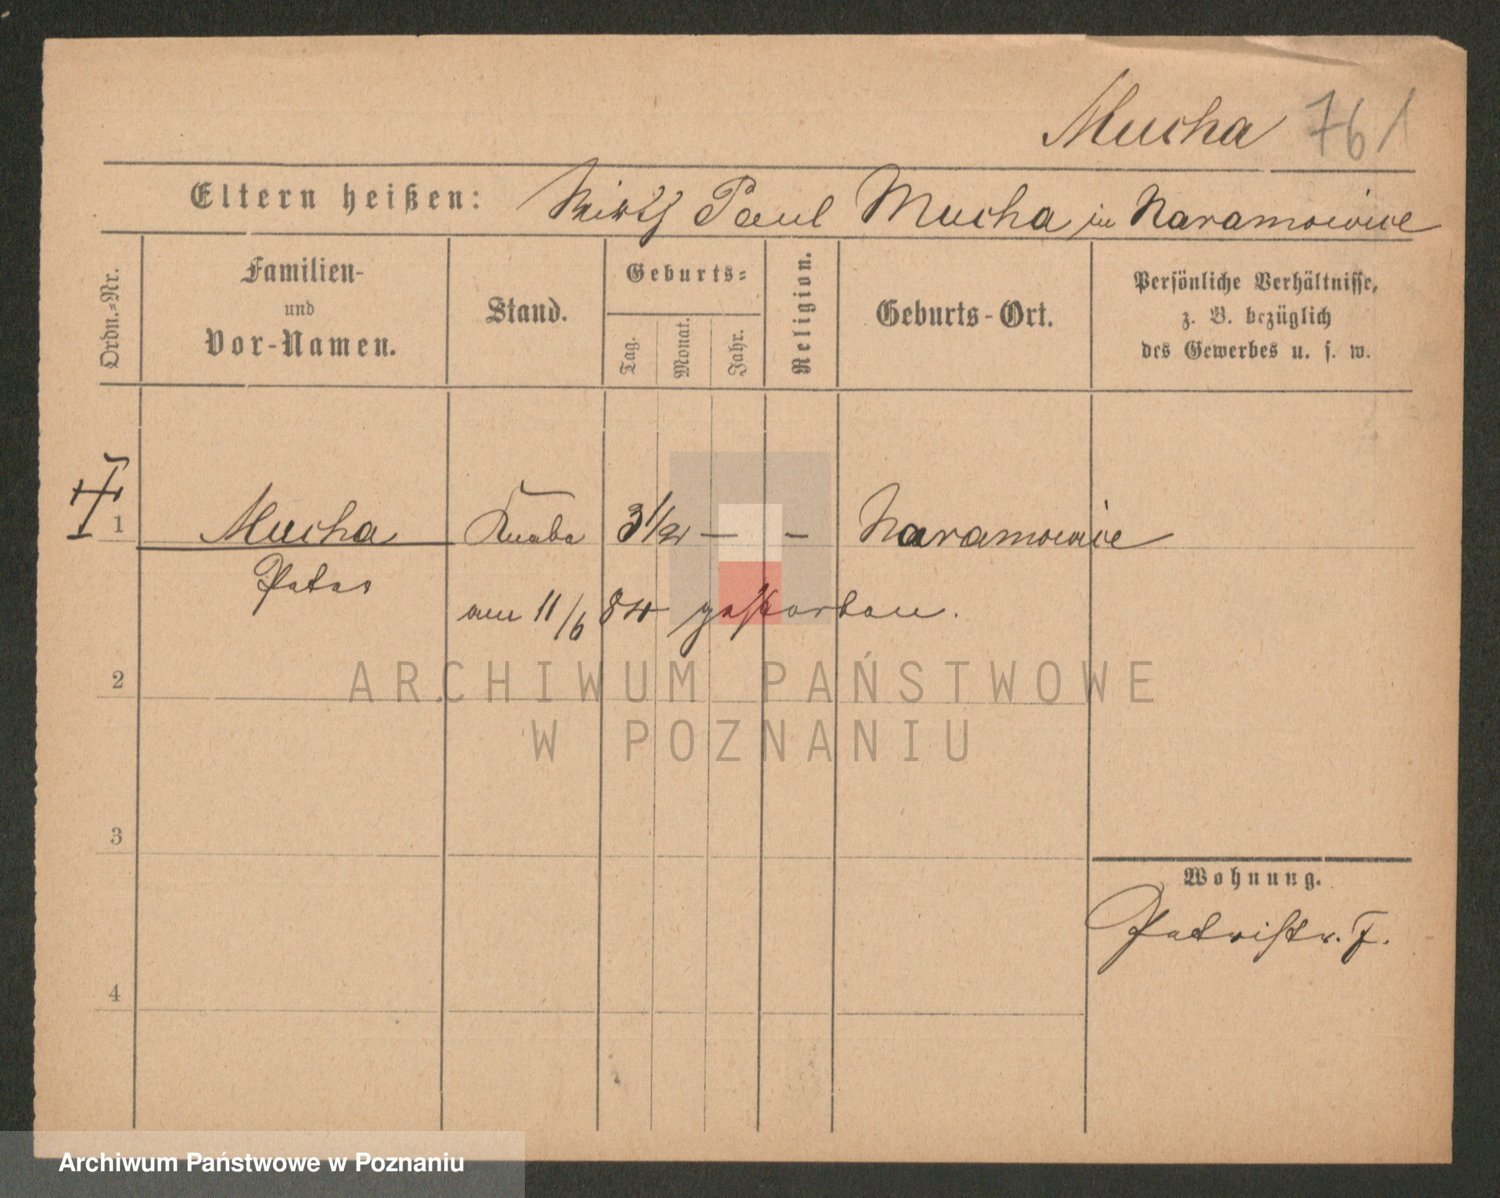 Mucha 761
Eltern heißen: Wirth Paul Mucha in Naramowice
Ordn.-Nr.
Familien-
und
Vor-Namen.
Stand.
Geburts-
Tag.
Monat.
Jahr.
Religion.
Geburts-Ort.
Persönliche Verhältnisse,
z. B. bezüglich
des Gewerbes u. s. w.
1 Mucha Knabe 3 1/2 — – Naramowice
Peter
am 11/6 84 gestorben.
ARCHIWUM PAŃSTWOWE
W POZNANIU
2
3
Wohnung.
Petristr. 7.
4
Archiwum Państwowe w Poznaniu